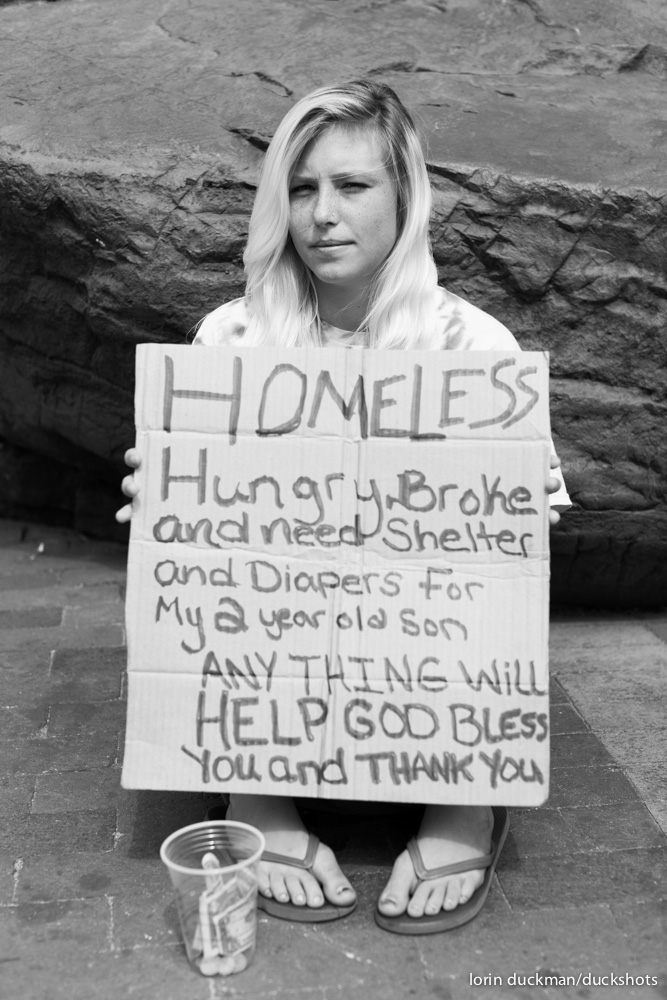 HOMELESS
Hungry, Broke
and need Shelter
and Diapers For
My 2 year old Son
ANYTHING WiLL
HELP GOD BLESS
You and THANK YOU
lorin duckman/duckshots